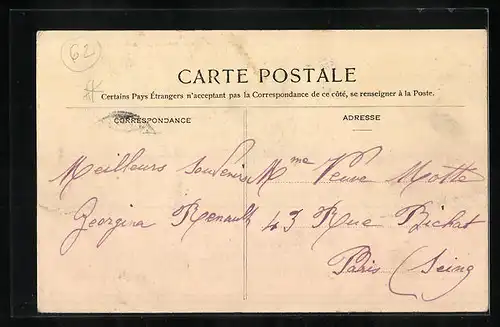 62
CARTE POSTALE
Certains Pays Étrangers n'acceptant pas la Correspondance de ce côté, se renseigner à la Poste.
CORRESPONDANCE
ADRESSE
Meilleurs Souvenirs
Georgina Renault
Mme Veuve Motte
43 Rue Bichat
Paris (Seine